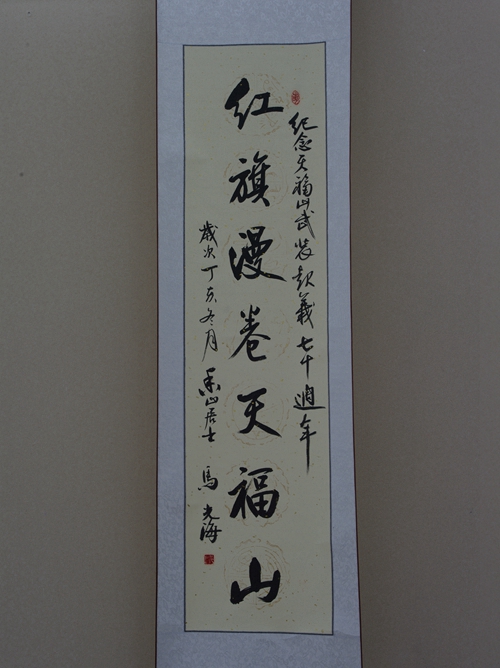 纪念天福山武装起义七十週年
红旗漫卷天福山
歲次丁亥冬月 香山居士 馬光海